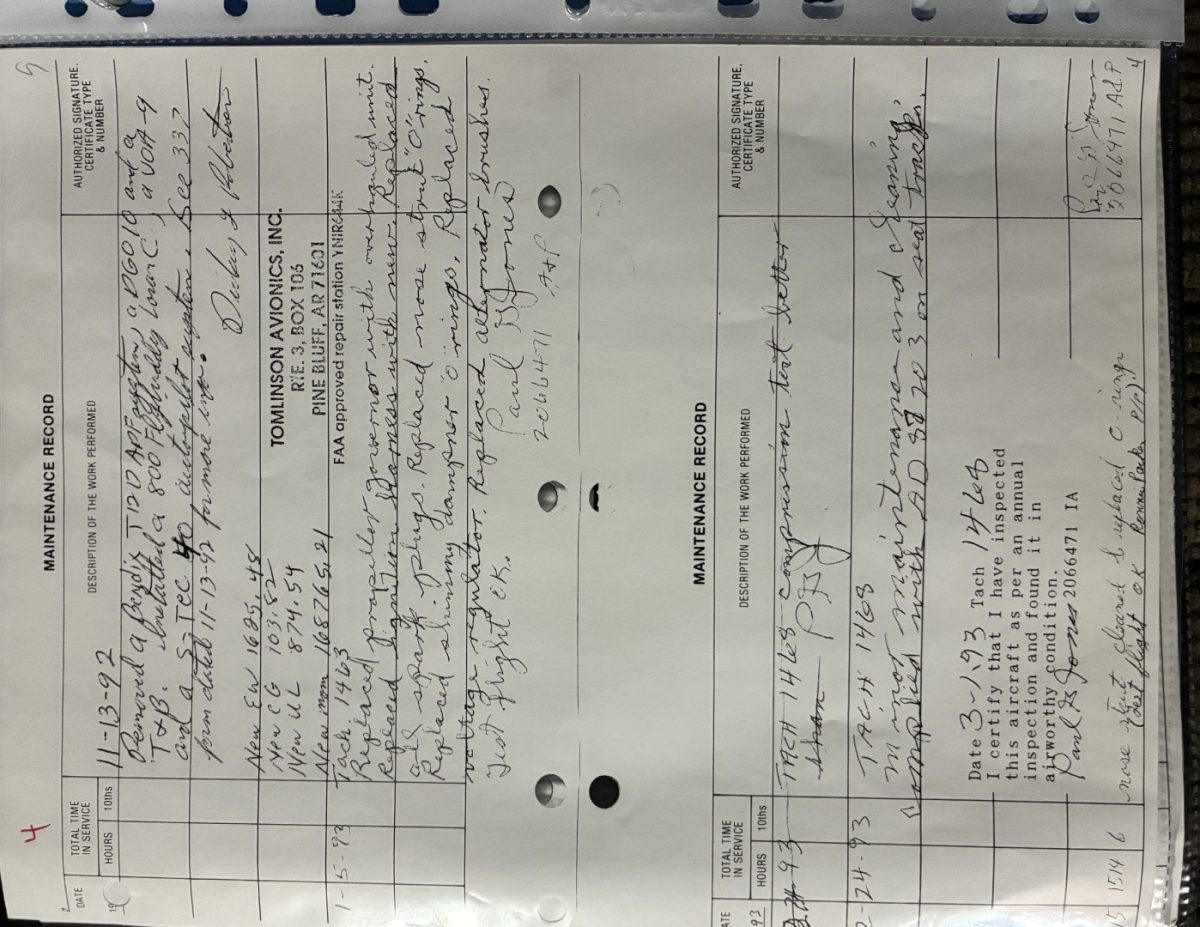 4
MAINTENANCE RECORD
DATE
TOTAL TIME IN SERVICE
HOURS 10ths
DESCRIPTION OF THE WORK PERFORMED
AUTHORIZED SIGNATURE, CERTIFICATE TYPE & NUMBER
19
11-13-92
Removed a Bendix T12D ADF system, a DGO10 and a
T&B. Installed a 800 Flybuddy Loran C, a VOA-9
and a S-Tec 40 autopilot system. See 337
form dated 11-13-92 for more info.
New EW 1625.48
New CG 103.82
New UL 874.54
New mom 168765.21
TOMLINSON AVIONICS, INC.
RTE. 3, BOX 106
PINE BLUFF, AR 71601
FAA approved repair station
1-5-93 Tach. 1463
Replaced propeller governor with overhauled unit.
Replaced ignition harness with new. Replaced
all spark plugs. Replaced nose strut "O" rings.
Replaced shimmy dampner "o" rings. Replaced
voltage regulator. Replaced alternator brushes.
Test flight OK.
Paul D Jones
2066471 A&P
MAINTENANCE RECORD
DATE
TOTAL TIME IN SERVICE
HOURS 10ths
DESCRIPTION OF THE WORK PERFORMED
AUTHORIZED SIGNATURE, CERTIFICATE TYPE & NUMBER
93
93 TACH 1468 compression test better
than
2-24-93 TACH 1468
minor maintenance and cleaning,
complied with AD 87 20 3 on seat tracks.
Date 3-1-93 Tach 1468
I certify that I have inspected
this aircraft as per an annual
inspection and found it in
airworthy condition.
Paul D Jones 2066471 IA
15 1514 6 nose strut cleaned & replaced O-rings
(test flight OK
2066471 A&P
4